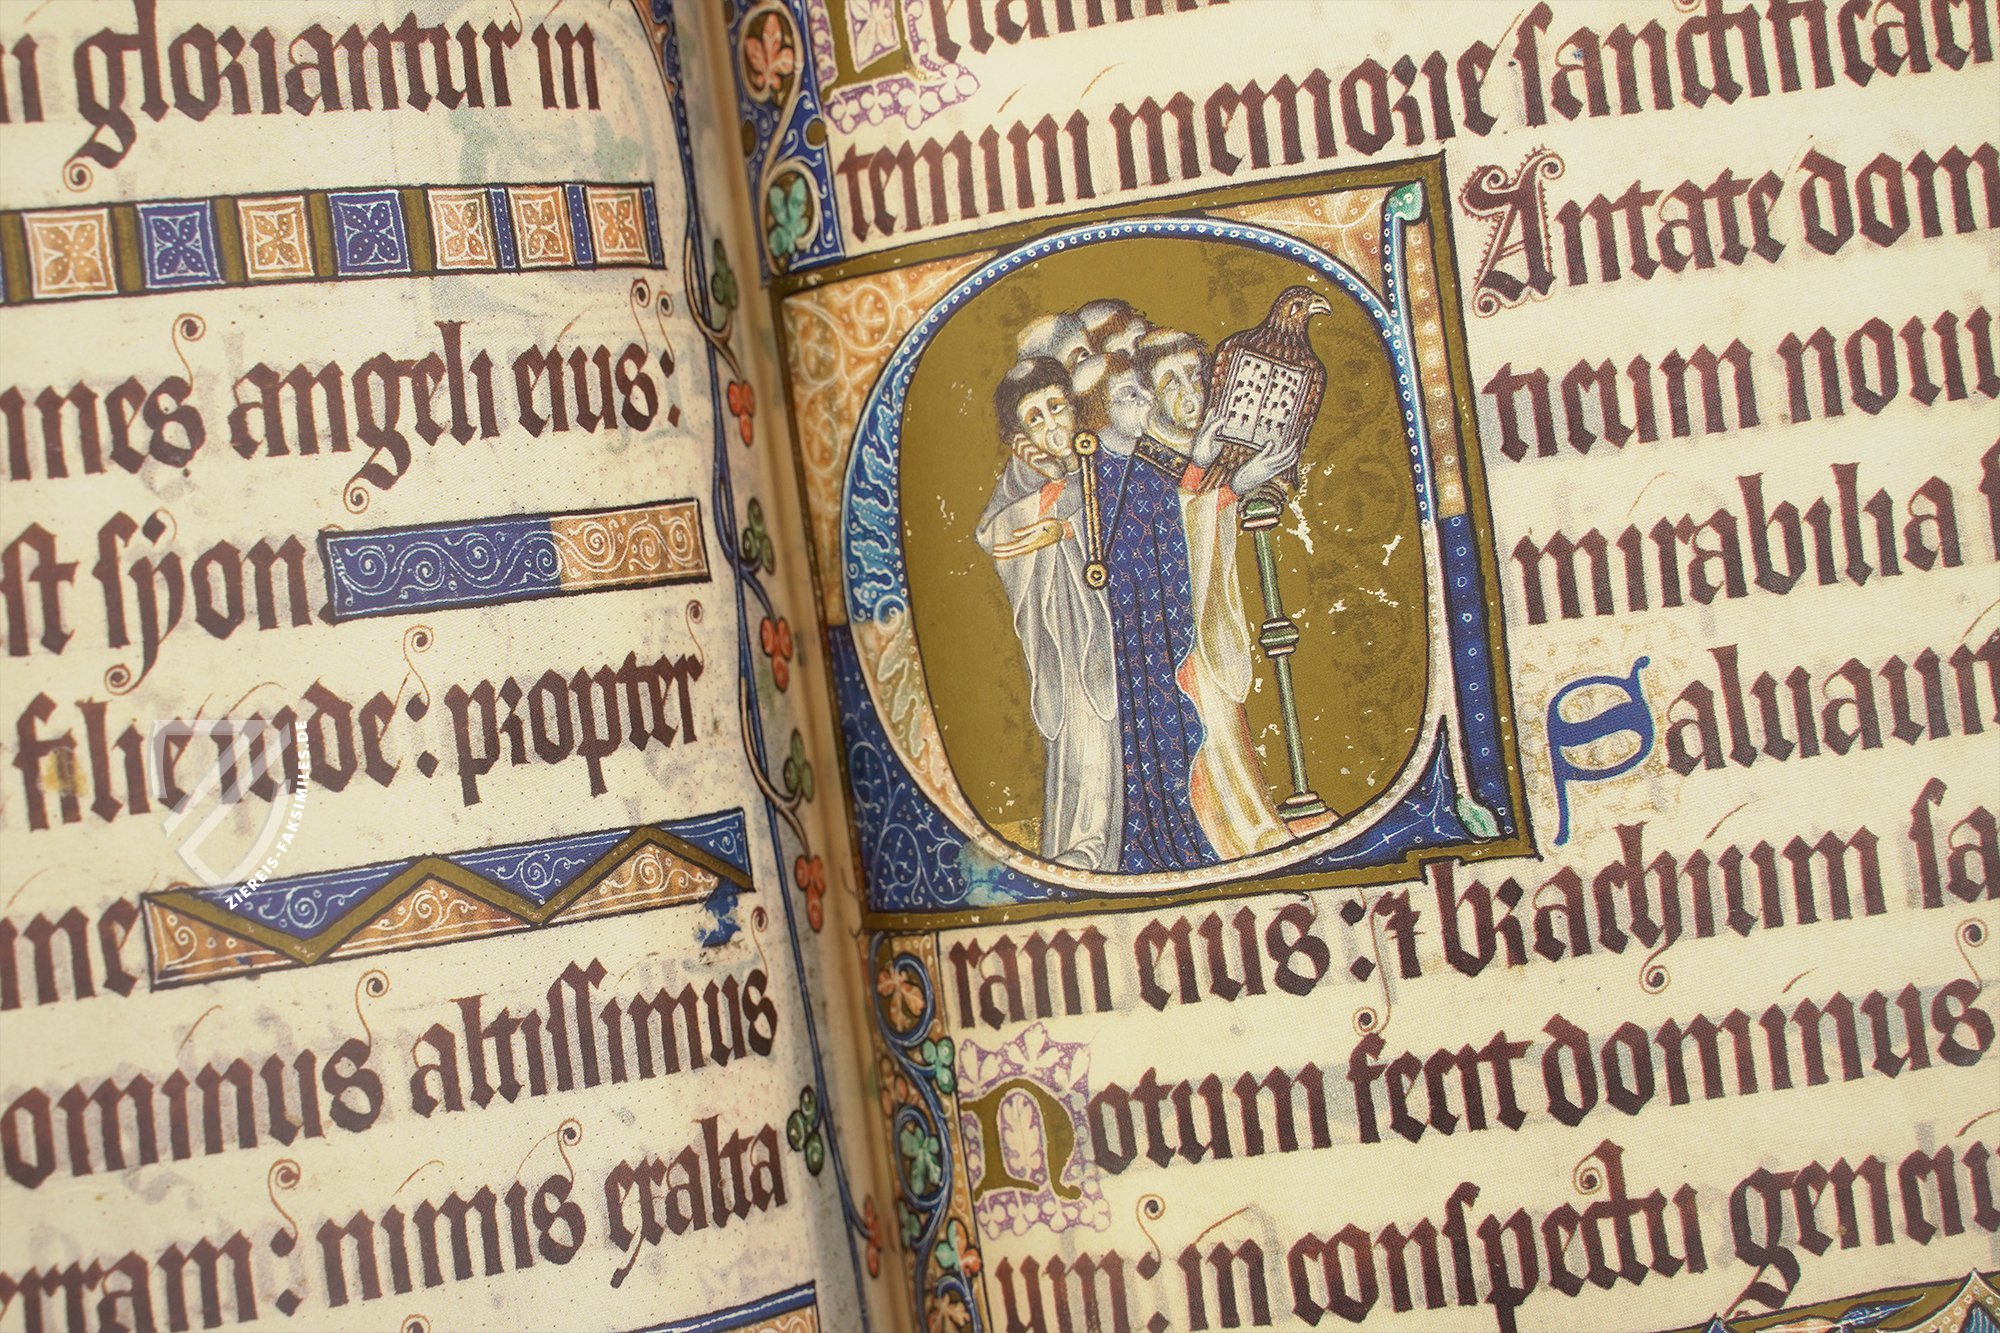 gloriantur in
angeli eius:
syon
filie iude: propter
ominus altissimus
rram: nimis exalta
temini memorie sanctificaci
Antate dom
ticum nouu
mirabilia s
Saluauit
ram eius: ⁊ brachium sa
Notum fecit dominus
um: in conspectu genciu
ZIEREIS-FAKSIMILES.DE